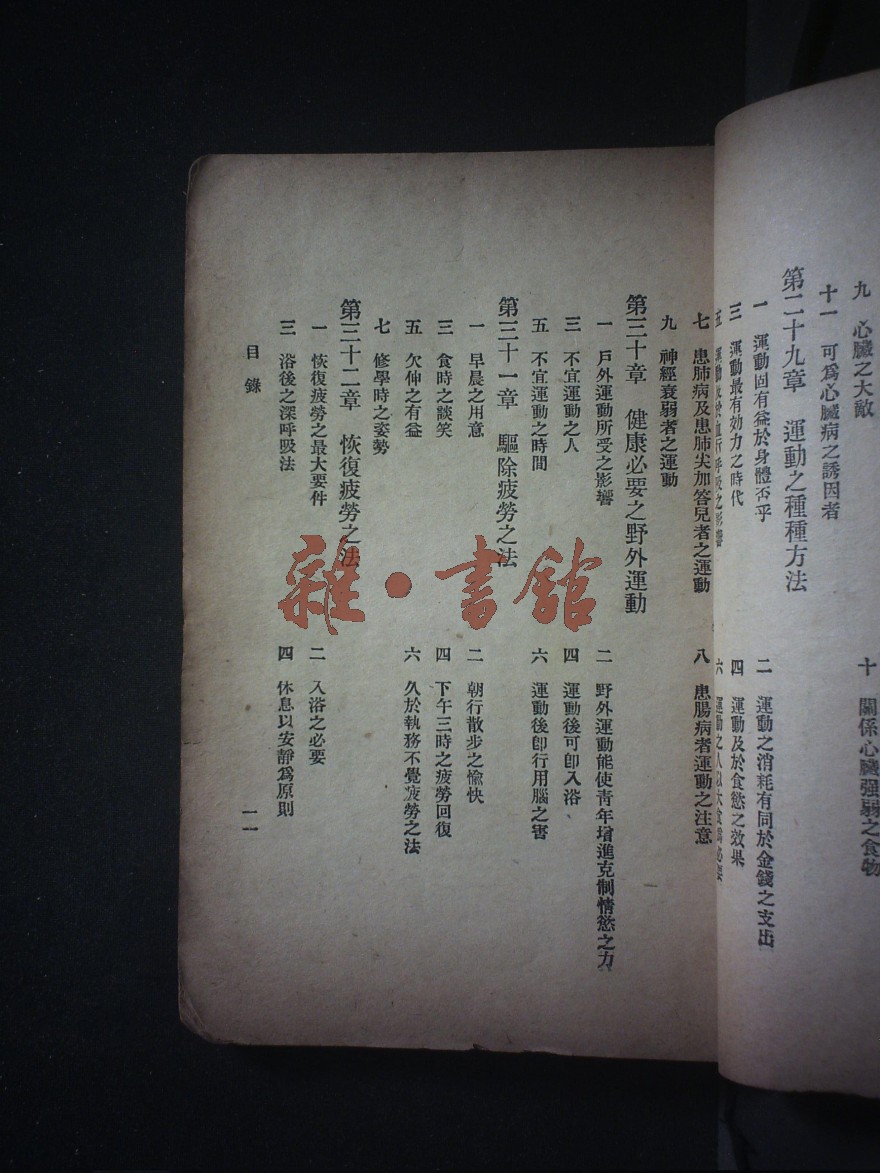 九　心臟之大敵　十　關係心臟强弱之食物
十一　可爲心臟病之誘因者
第二十九章　運動之種種方法
一　運動固有益於身體否乎　二　運動之消耗有同於金錢之支出
三　運動最有効力之時代　四　運動及於食慾之效果
五　運動　六　運動之人
七　患肺病及患肺尖加答兒者之運動　八　患腸病者運動之注意
九　神經衰弱者之運動
第三十章　健康必要之野外運動
一　戶外運動所受之影響　二　野外運動能使青年增進克制情慾之力
三　不宜運動之人　四　運動後可卽入浴
五　不宜運動之時間　六　運動後卽行用腦之害
第三十一章　驅除疲勞之法
一　早晨之用意　二　朝行散步之愉快
三　食時之談笑　四　下午三時之疲勞回復
五　欠伸之有益　六　久於執務不覺疲勞之法
七　修學時之姿勢
第三十二章　恢復疲勞之法
一　恢復疲勞之最大要件　二　入浴之必要
三　浴後之深呼吸法　四　休息以安靜爲原則
目錄　一一
雜·書館